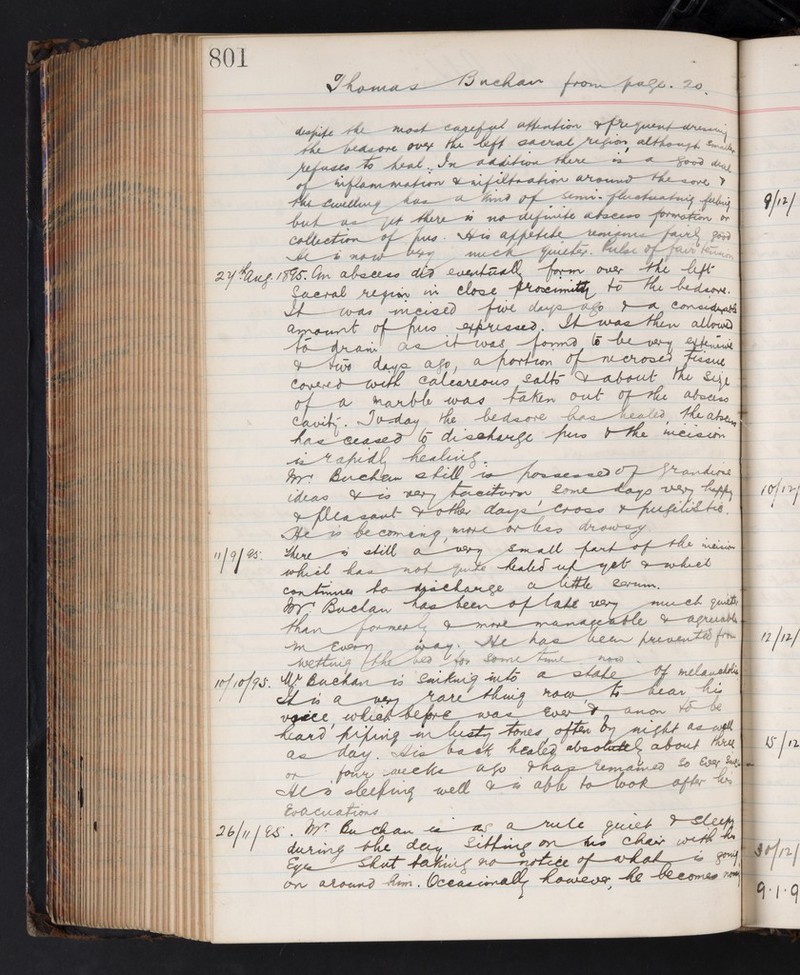 801
Thomas Buchan from page. 20.
despite the most careful attention & frequent dressing
the bedsore over the left sacral region, although smaller
refuses to heal. In addition there is a good deal
of inflammation & infiltration around the sore &
the swelling has a kind of semi-fluctuating feeling
but as yet there is no definite abscess formation or
collection of pus. His appetite remains fairly good
He is now very much quieter. Pulse of fair tension
27th Aug. 1895. An abscess did eventually form over the left
Sacral region in close proximity to the bedsore.
It was incised five days ago & a considerable
amount of pus expressed. It was then allowed
to drain as it was found to be very extensive
& two days ago, a portion of necrosed tissue
covered with calcareous salts & about the size
of a marble was taken out of the abscess
cavity. Today the bedsore has healed, the abscess
has ceased to discharge pus & the incision
is rapidly healing.
Mr. Buchan still is possessed of grandiose
ideas & is very taciturn some days very happy
& pleasant & other days cross & pugilistic.
He is becoming more or less drowsy
11/9/95. There is still a very small part of the incision
which has not quite healed up yet & which
continues to discharge a little serum.
Mr. Buchan has been of late very much quieter
than formerly & more manageable & agreeable
in every way. He has been prevented from
wetting the bed for some time now.
10/10/95. Mr Buchan is sinking into a state of melancholia
It is a very rare thing now to hear his
voice, which before was ever & anon to be
heard piping in lusty tones often by night as well
as day. His back healed absolutely about three
or four weeks ago & has remained so ever since
He is sleeping well & is able to look after his
Evacuations
26/11/95. Mr. Buchan is as a rule quiet & sleepy
during the day sitting on his chair with his
Eyes shut taking no notice of what is going
on around him. Occasionally however, he becomes noisy
9/12/
10/12/
12/12/
15/12
30/12/
9.1.9